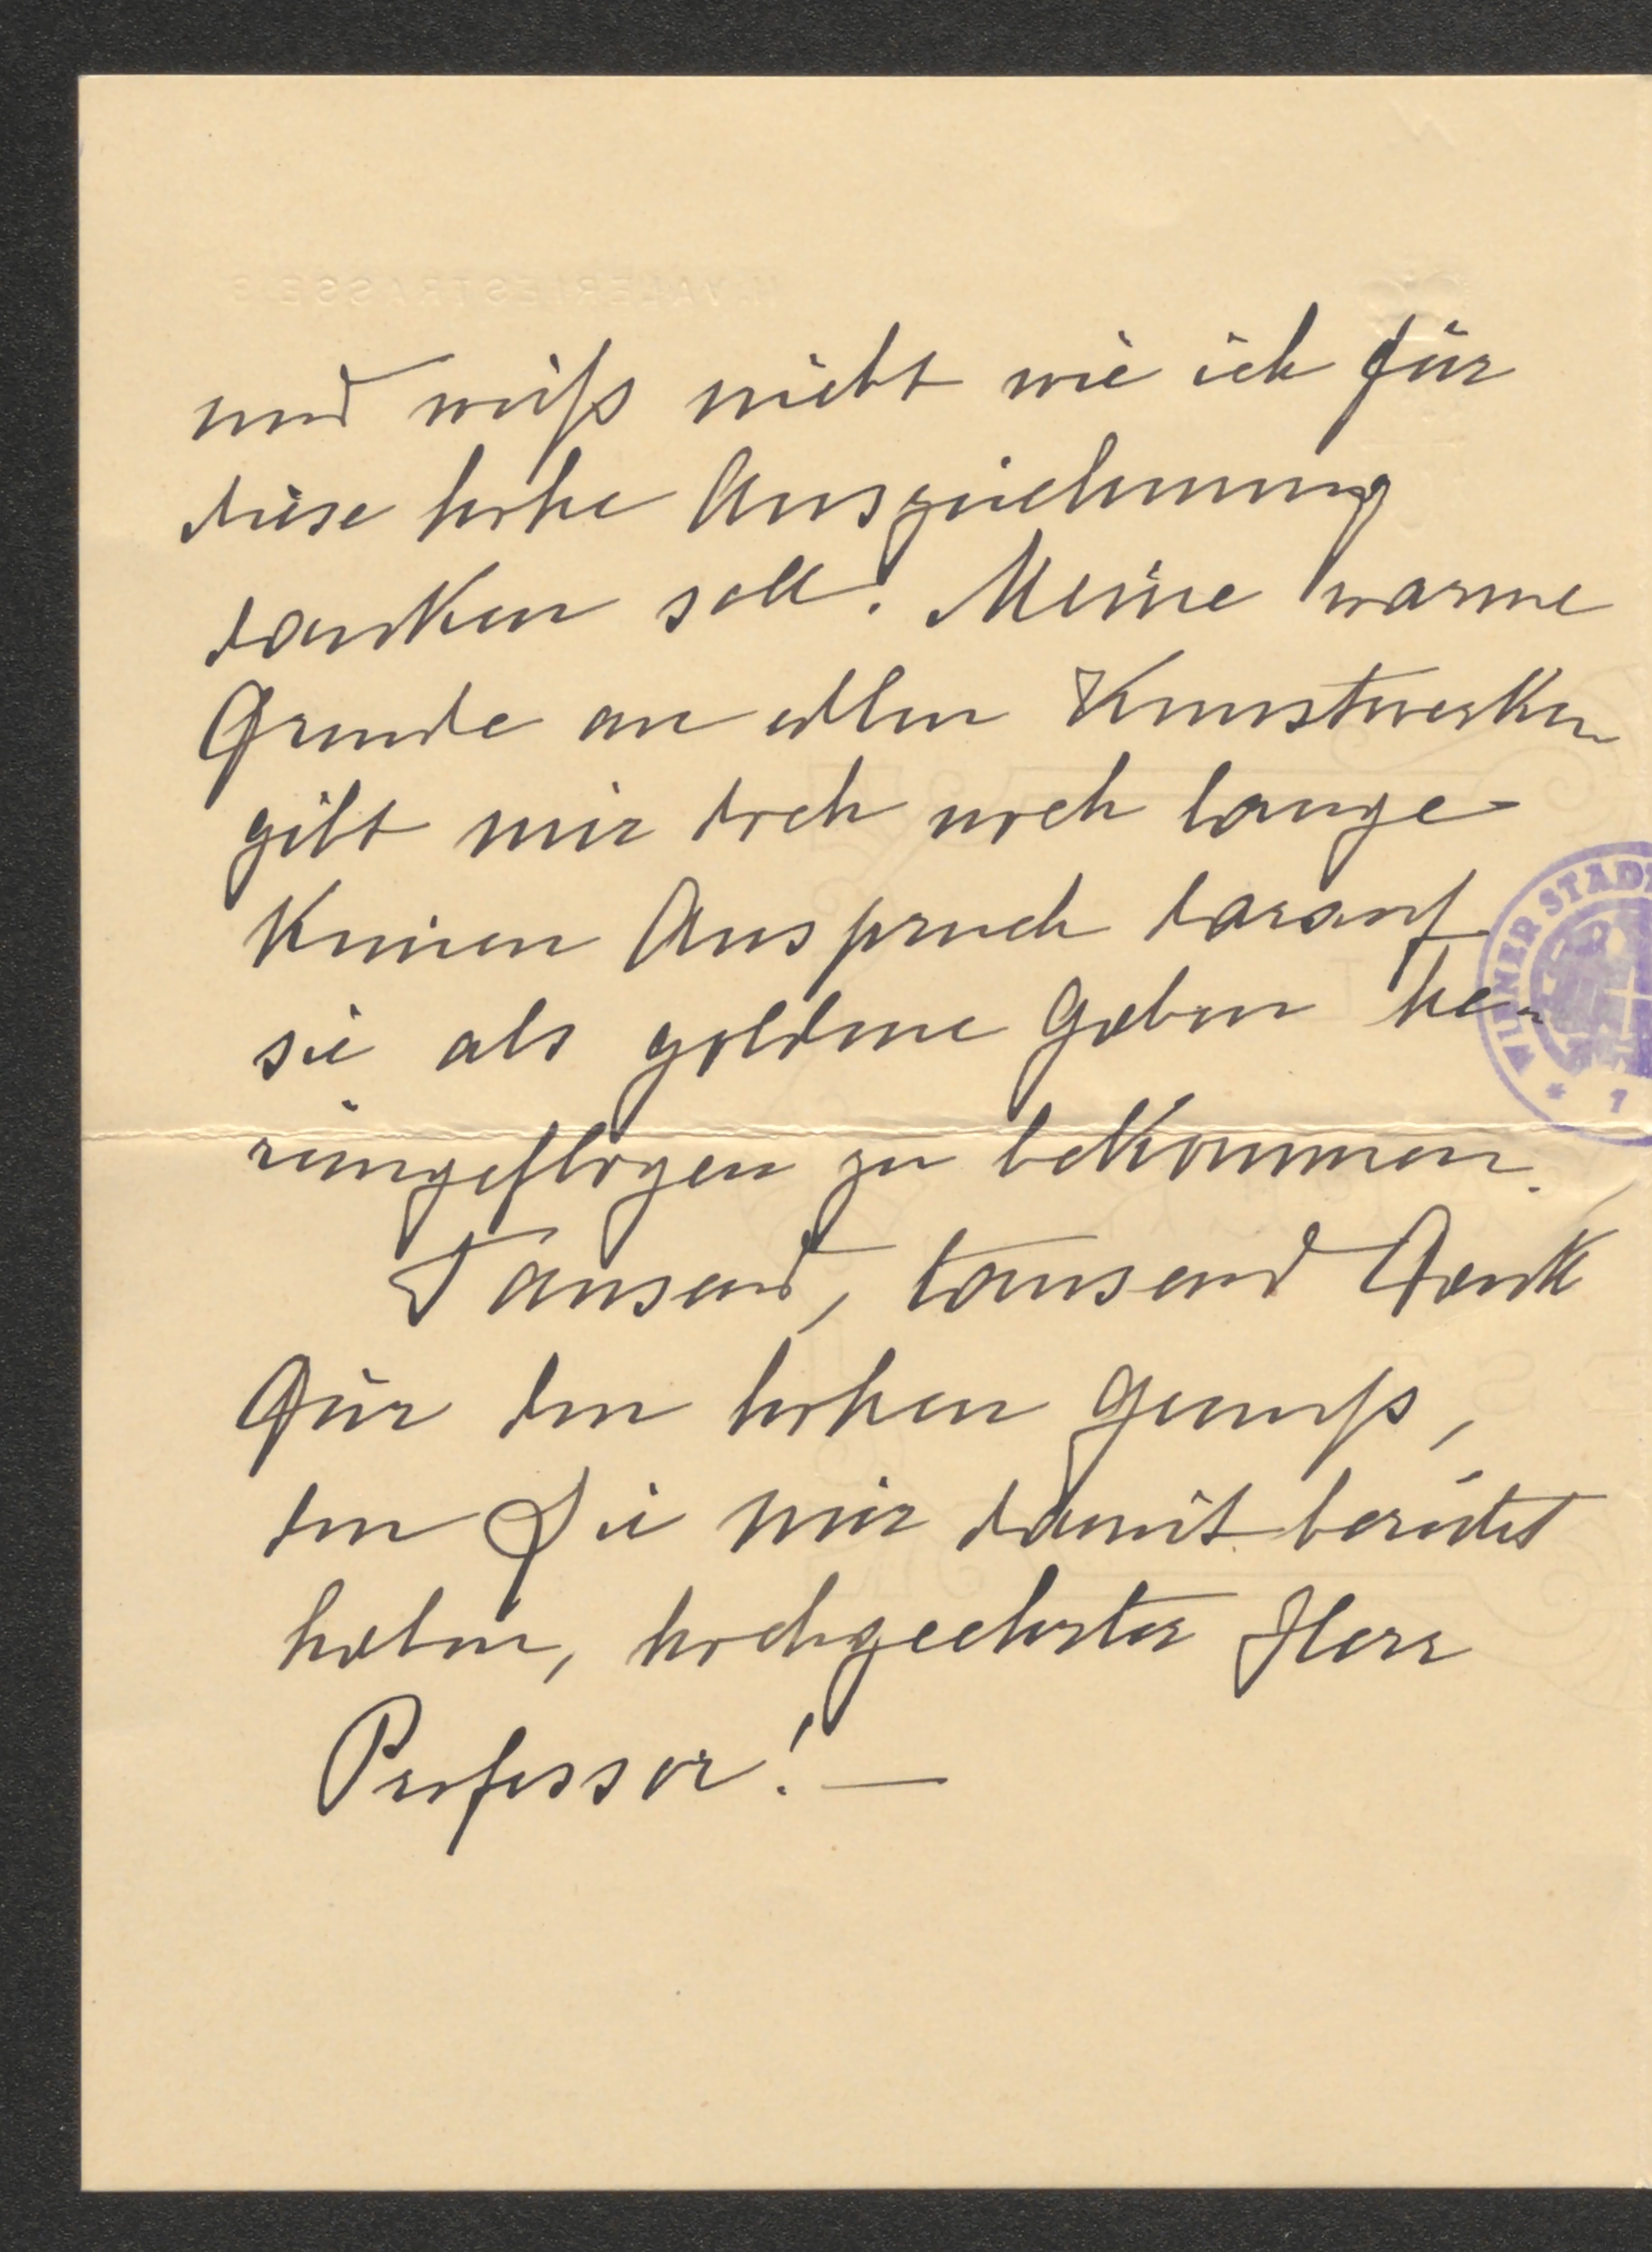 II. VALERIESTRASSE 3
und weiß nicht wie ich für
diese hohe Auszeichnung
danken soll. Meine warme
Freude an edlen Kunstwerken
gibt mir doch noch lange
keinen Anspruch darauf
sie als goldene Gaben he-
reingeflogen zu bekommen.
Tausend, tausend Dank
für den hohen Genuß,
den Sie mir damit bereitet
haben, hochgeehrter Herr
Professor! —
WIENER STADT